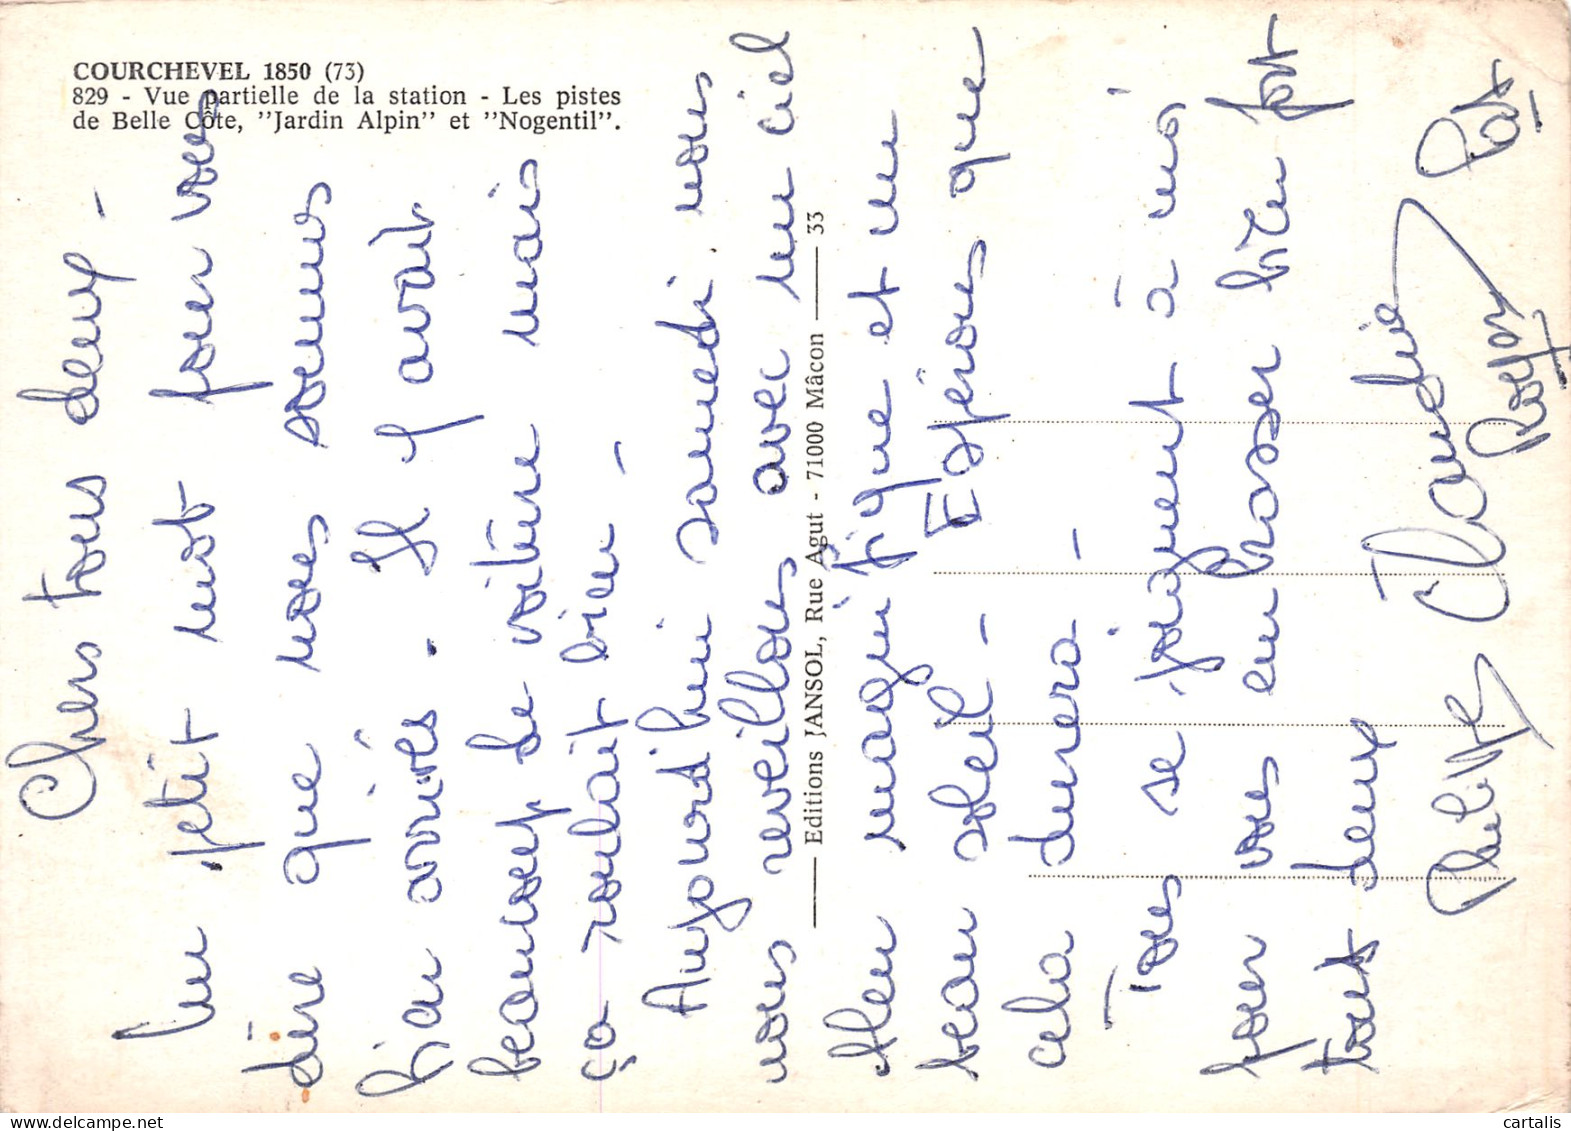 COURCHEVEL 1850 (73)
829 - Vue partielle de la station - Les pistes
de Belle Côte, "Jardin Alpin" et "Nogentil".
Editions JANSOL, Rue Agut - 71000 Mâcon 33
Chers tous deux -
Un petit mot pour vous
dire que nous sommes
bien arrivés. Il y avait
beaucoup de voiture mais
ça roulait bien -
Aujourd'hui samedi nous
nous reveillons avec un ciel
bleu magnifique et un
beau soleil - Espérons que
cela durera -
Tous se joignent à moi
pour vous embrasser bien fort
tous deux
Claudie Pat
Philippe Roger
cartalis